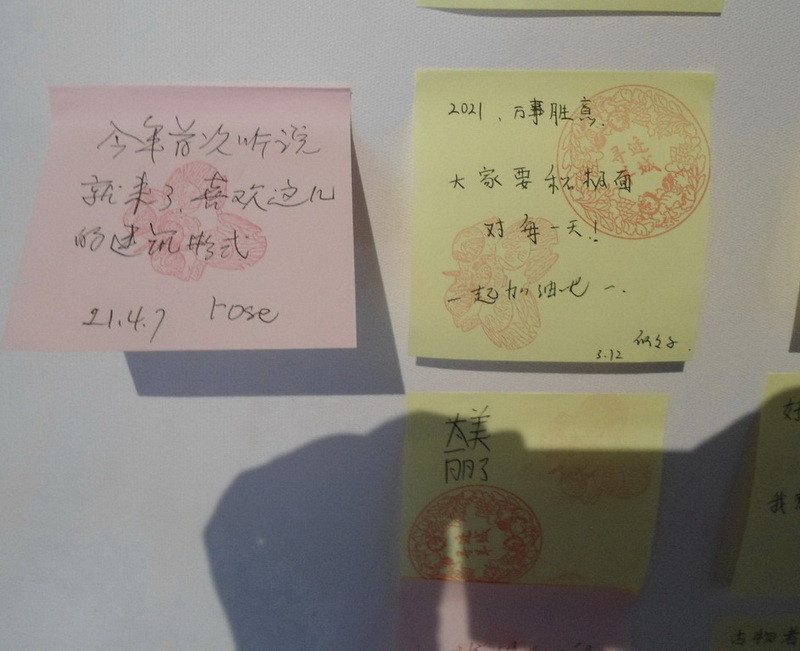 今年首次听说
就来了,喜欢这儿
的建筑形式
21.4.7 rose
2021,万事胜意.
大家要积极面
对每一天!
一起加油吧～.
3.12
太美
丽了
好
我
古物者